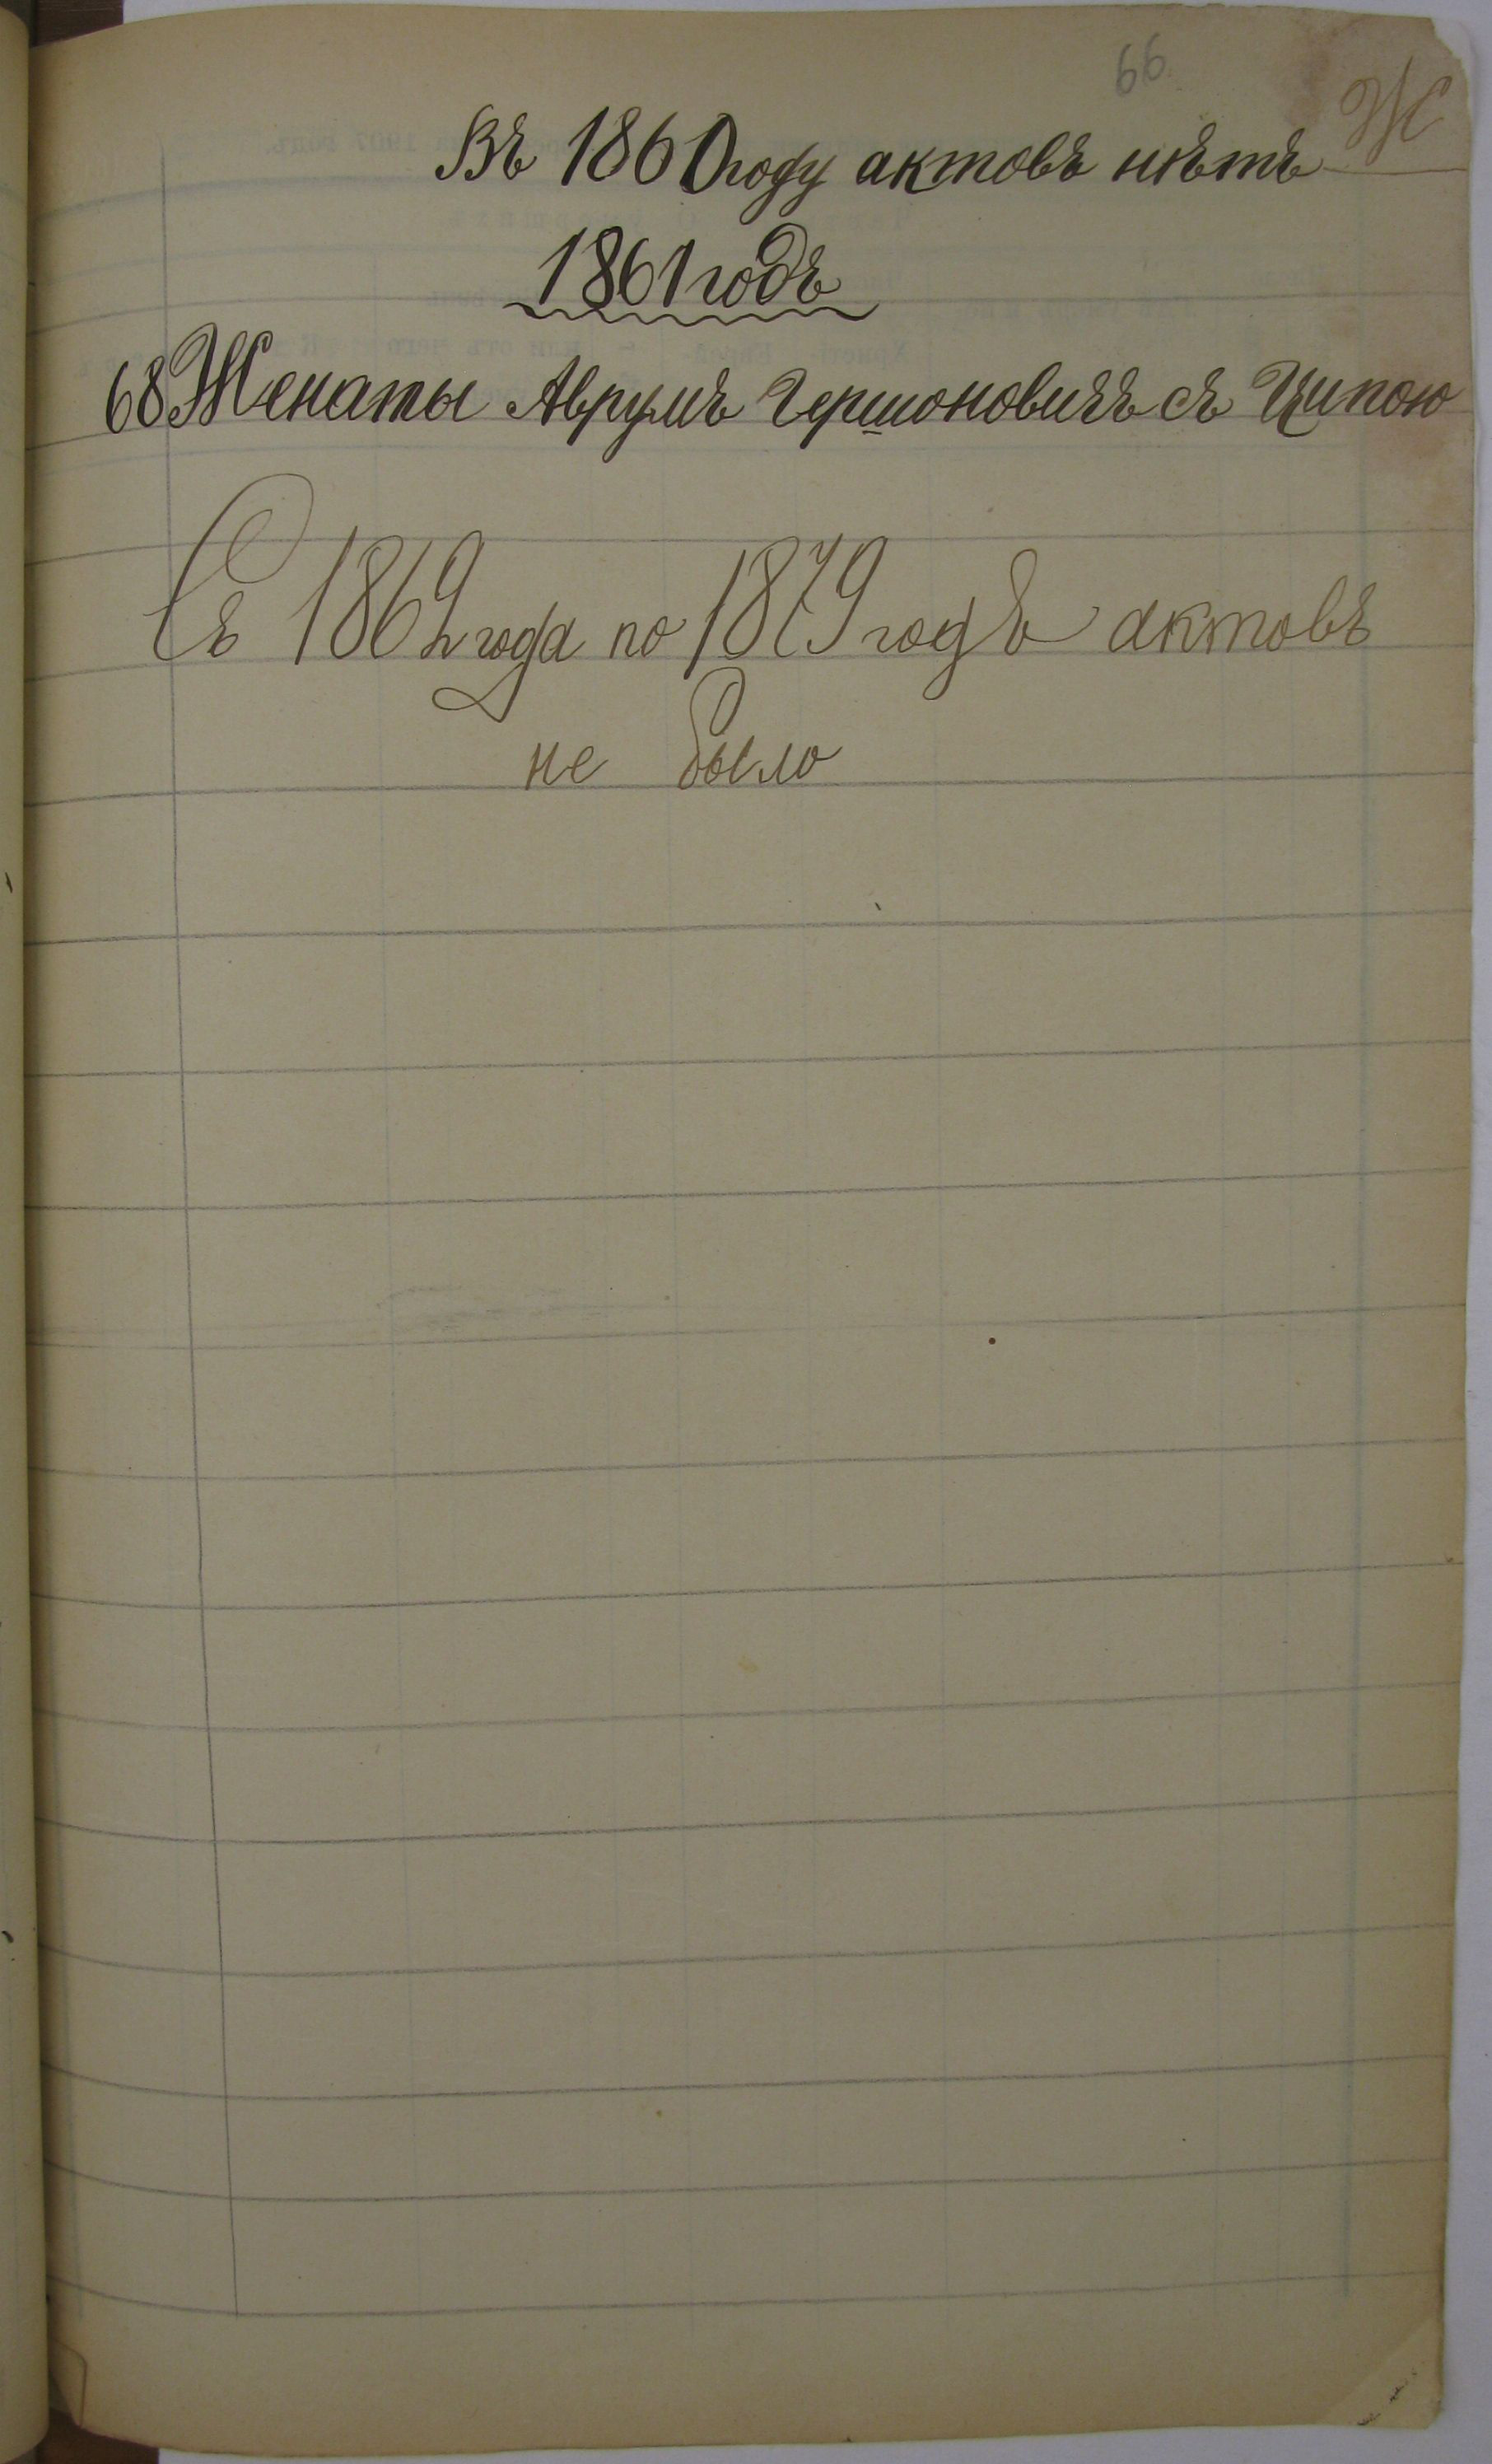 66
Ж
Въ 1860 году актовъ нѣтъ
1861 годъ
68 Женаты Аврумъ Гершоновичъ съ Ципою
Съ 1862 года по 1879 годъ актовъ
не было